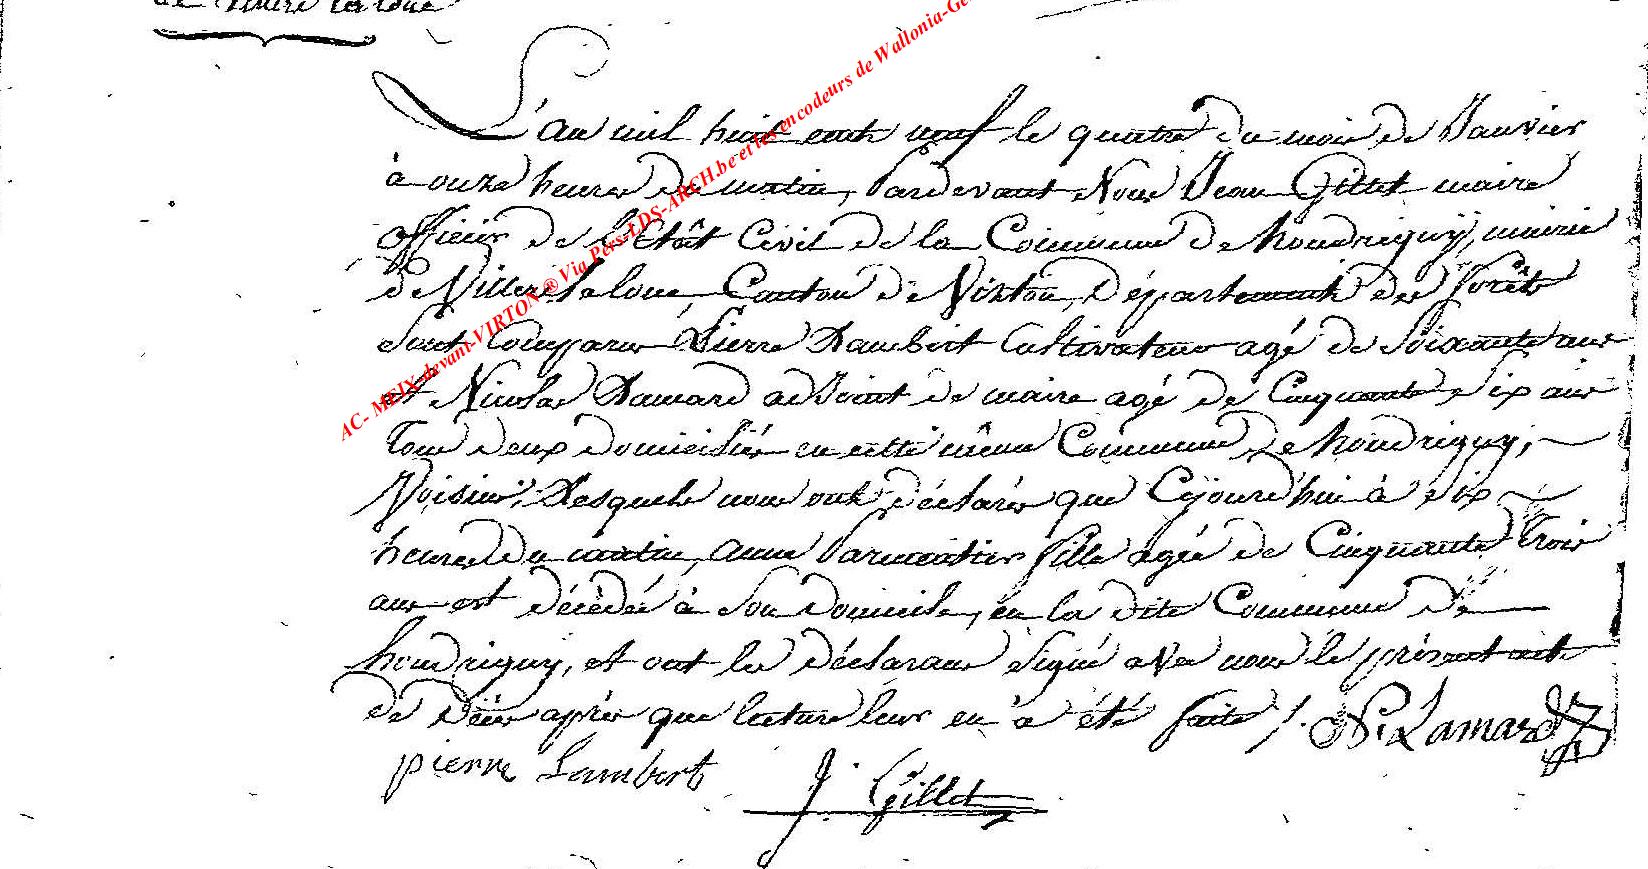 de Villers la loue
L'an mil huit cent neuf le quatre du mois de Janvier
à onze heures du matin, Pardevant Nous Jean Gillet maire
officier de l'Etât Civil de la Commune de houdrigny, mairie
de Villers la loue, Canton de Virton, Département des forêts
sont Comparus Pierre Lambert Cultivateur agé de Soixante ans
et Nicolas Lamard adjoint de maire agé de Cinquante six ans
tous deux domiciliés en cette même Commune de houdrigny,
Voisins, Lesquels nous ont déclarés que Cejourd'hui à six
heures du matin, anne Parmentier fille agée de Cinquante Trois
ans est décédée à Son Domicile, en la dite Commune de
houdrigny, et ont les déclarans Signé avec nous le présent acte
de Décès après que lecture leur en a été faite /. N: Lamard
pierre Lambert
J. Gillet
AC- MEIX-devant-VIRTON® Via Pers-LDS-ARCH.be et les encodeurs de Wallonia-Ge